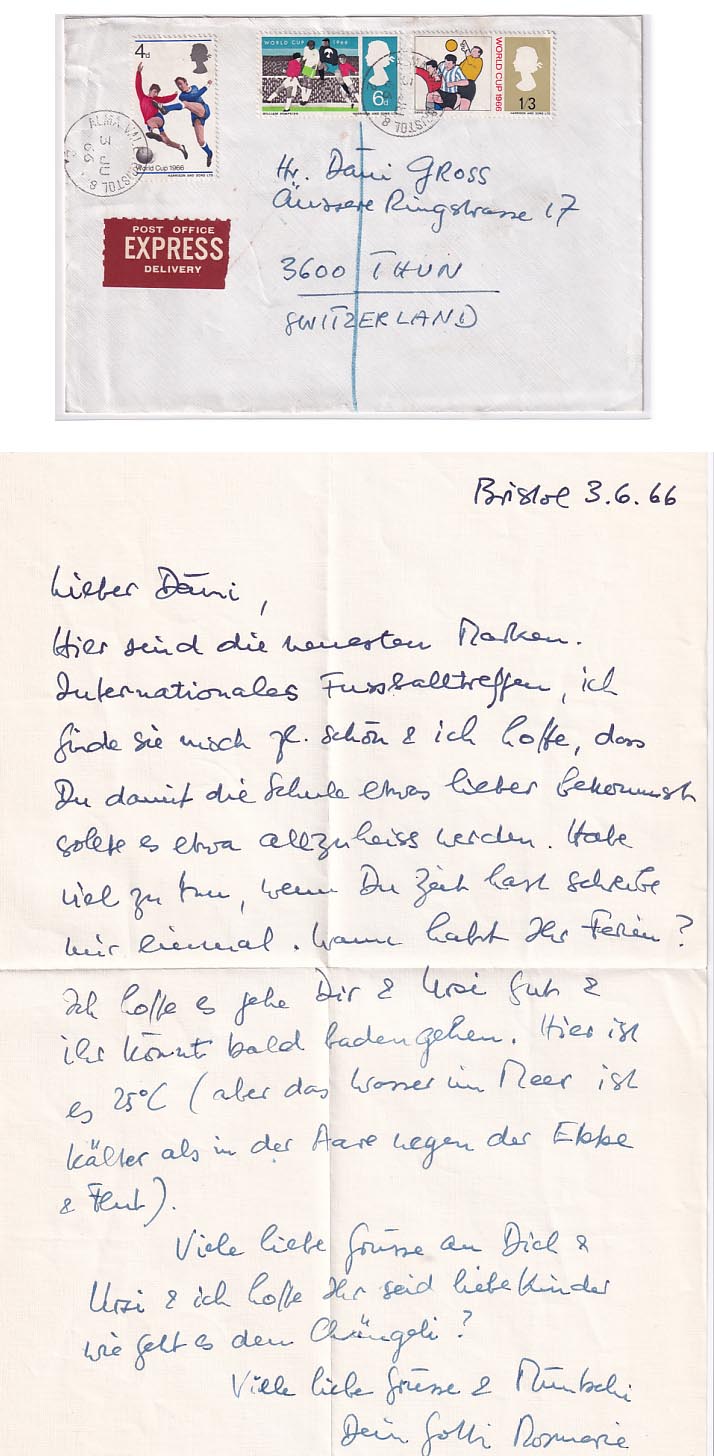 4d
World Cup 1966
HARRISON AND SONS LTD
WORLD CUP 1966
6d
WILLIAM KEMPSTER
HARRISON AND SONS LTD
WORLD CUP 1966
1/3
HARRISON AND SONS LTD
ALMA VALE BRISTOL 8
3 JU
66
POST OFFICE
EXPRESS
DELIVERY
Hr. Däni GROSS
Äussere Ringstrasse 17
3600 THUN
SWITZERLAND
Bristol 3.6.66
Lieber Däni,
Hier sind die neuesten Marken.
Internationales Fussballtreffen, ich
finde sie noch schön & ich hoffe, dass
Du damit die Schule etwas lieber bekommst
sollte es etwa allzuheiss werden. Habe
viel zu tun, wenn Du Zeit hast schreibe
mir einmal. Wann habt Ihr Ferien?
Ich hoffe es gehe Dir & Ursi gut &
ihr könnt bald baden gehen. Hier ist
es 25°C (aber das Wasser im Meer ist
kälter als in der Aare wegen der Ebbe
& Flut).
Viele liebe Grüsse an Dich &
Ursi & ich hoffe Ihr seid liebe Kinder
wie geht es dem Chängeli?
Viele liebe Grüsse & Müntschi
Dein Gotti Rosmarie